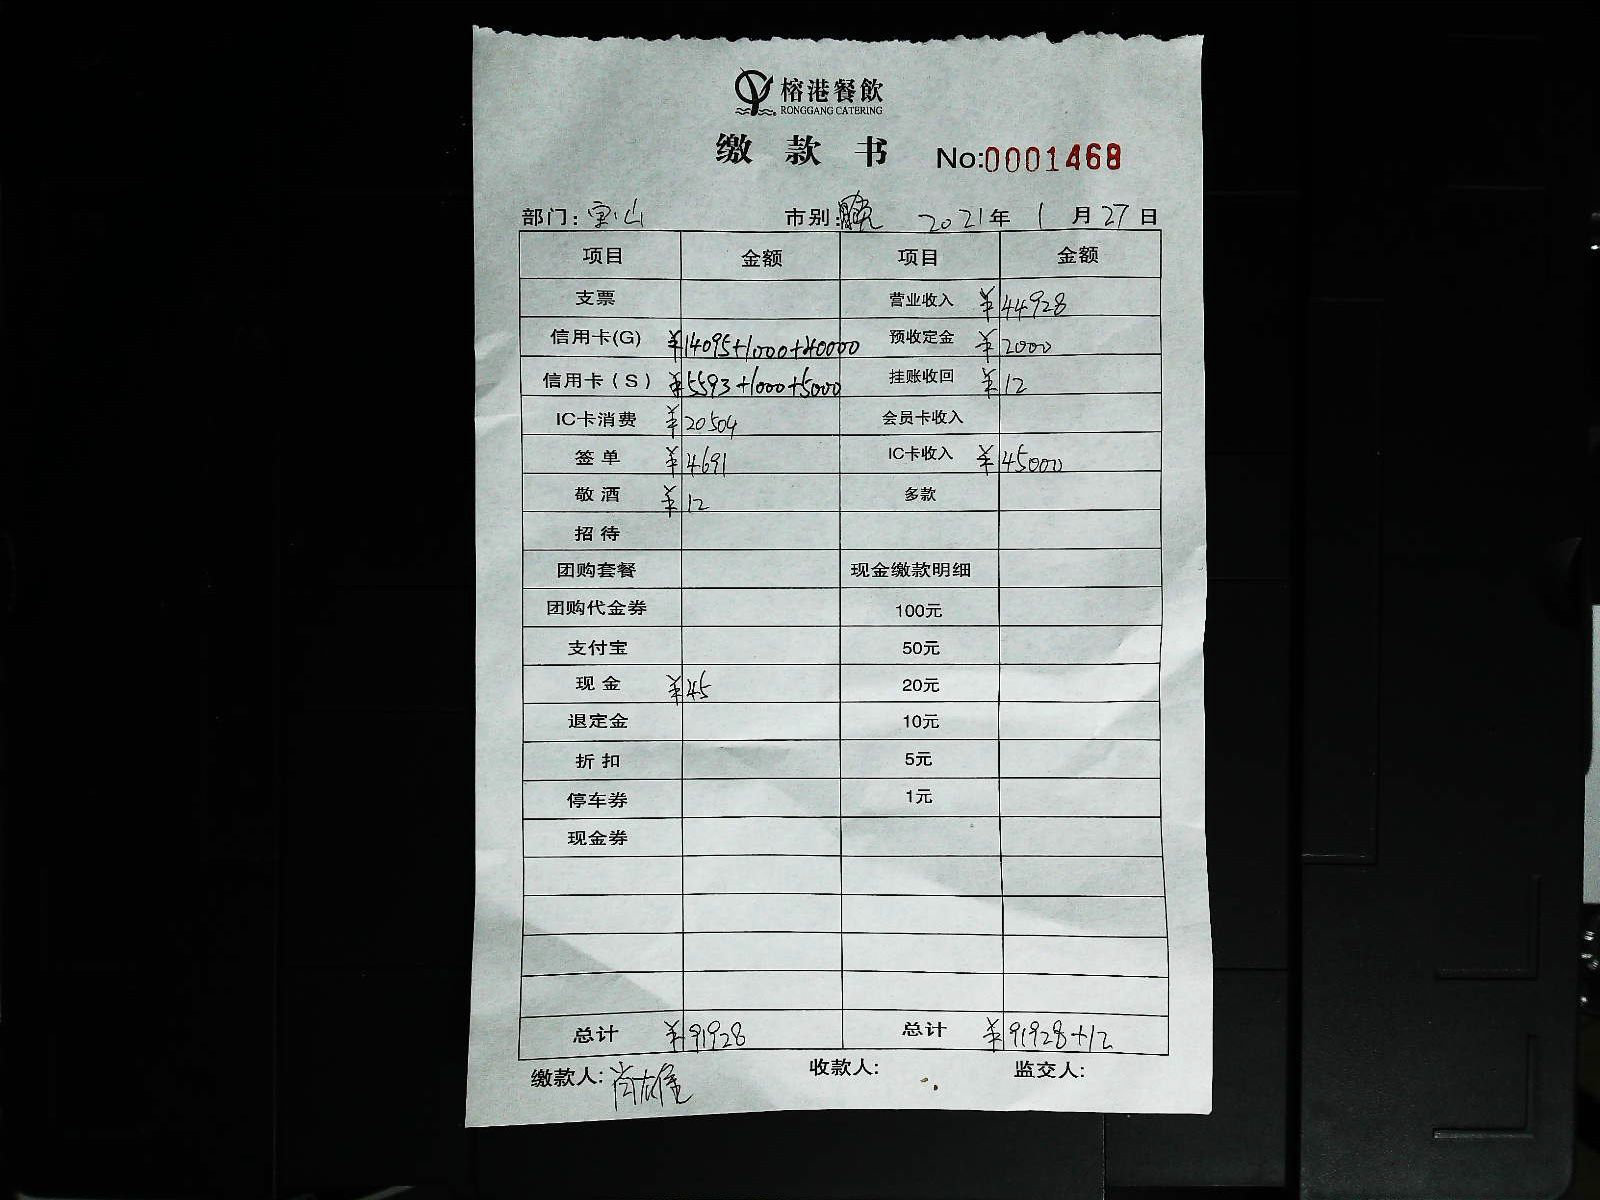 榕港餐飲
RONGGANG CATERING
缴款书 No:0001468
部门: 宝山 市别: 晚 2021年 1月27日
项目 金额 项目 金额
支票 营业收入 ¥44928
信用卡(G) ¥14095+1000+40000 预收定金 ¥2000
信用卡(S) ¥5593+1000+5000 挂账收回 ¥12
IC卡消费 ¥20504 会员卡收入
签单 ¥4691 IC卡收入 ¥45000
敬酒 ¥12 多款
招待
团购套餐 现金缴款明细
团购代金券 100元
支付宝 50元
现金 ¥45 20元
退定金 10元
折扣 5元
停车券 1元
现金券
总计 ¥91928 总计 ¥91928+12
缴款人: 收款人: 监交人: